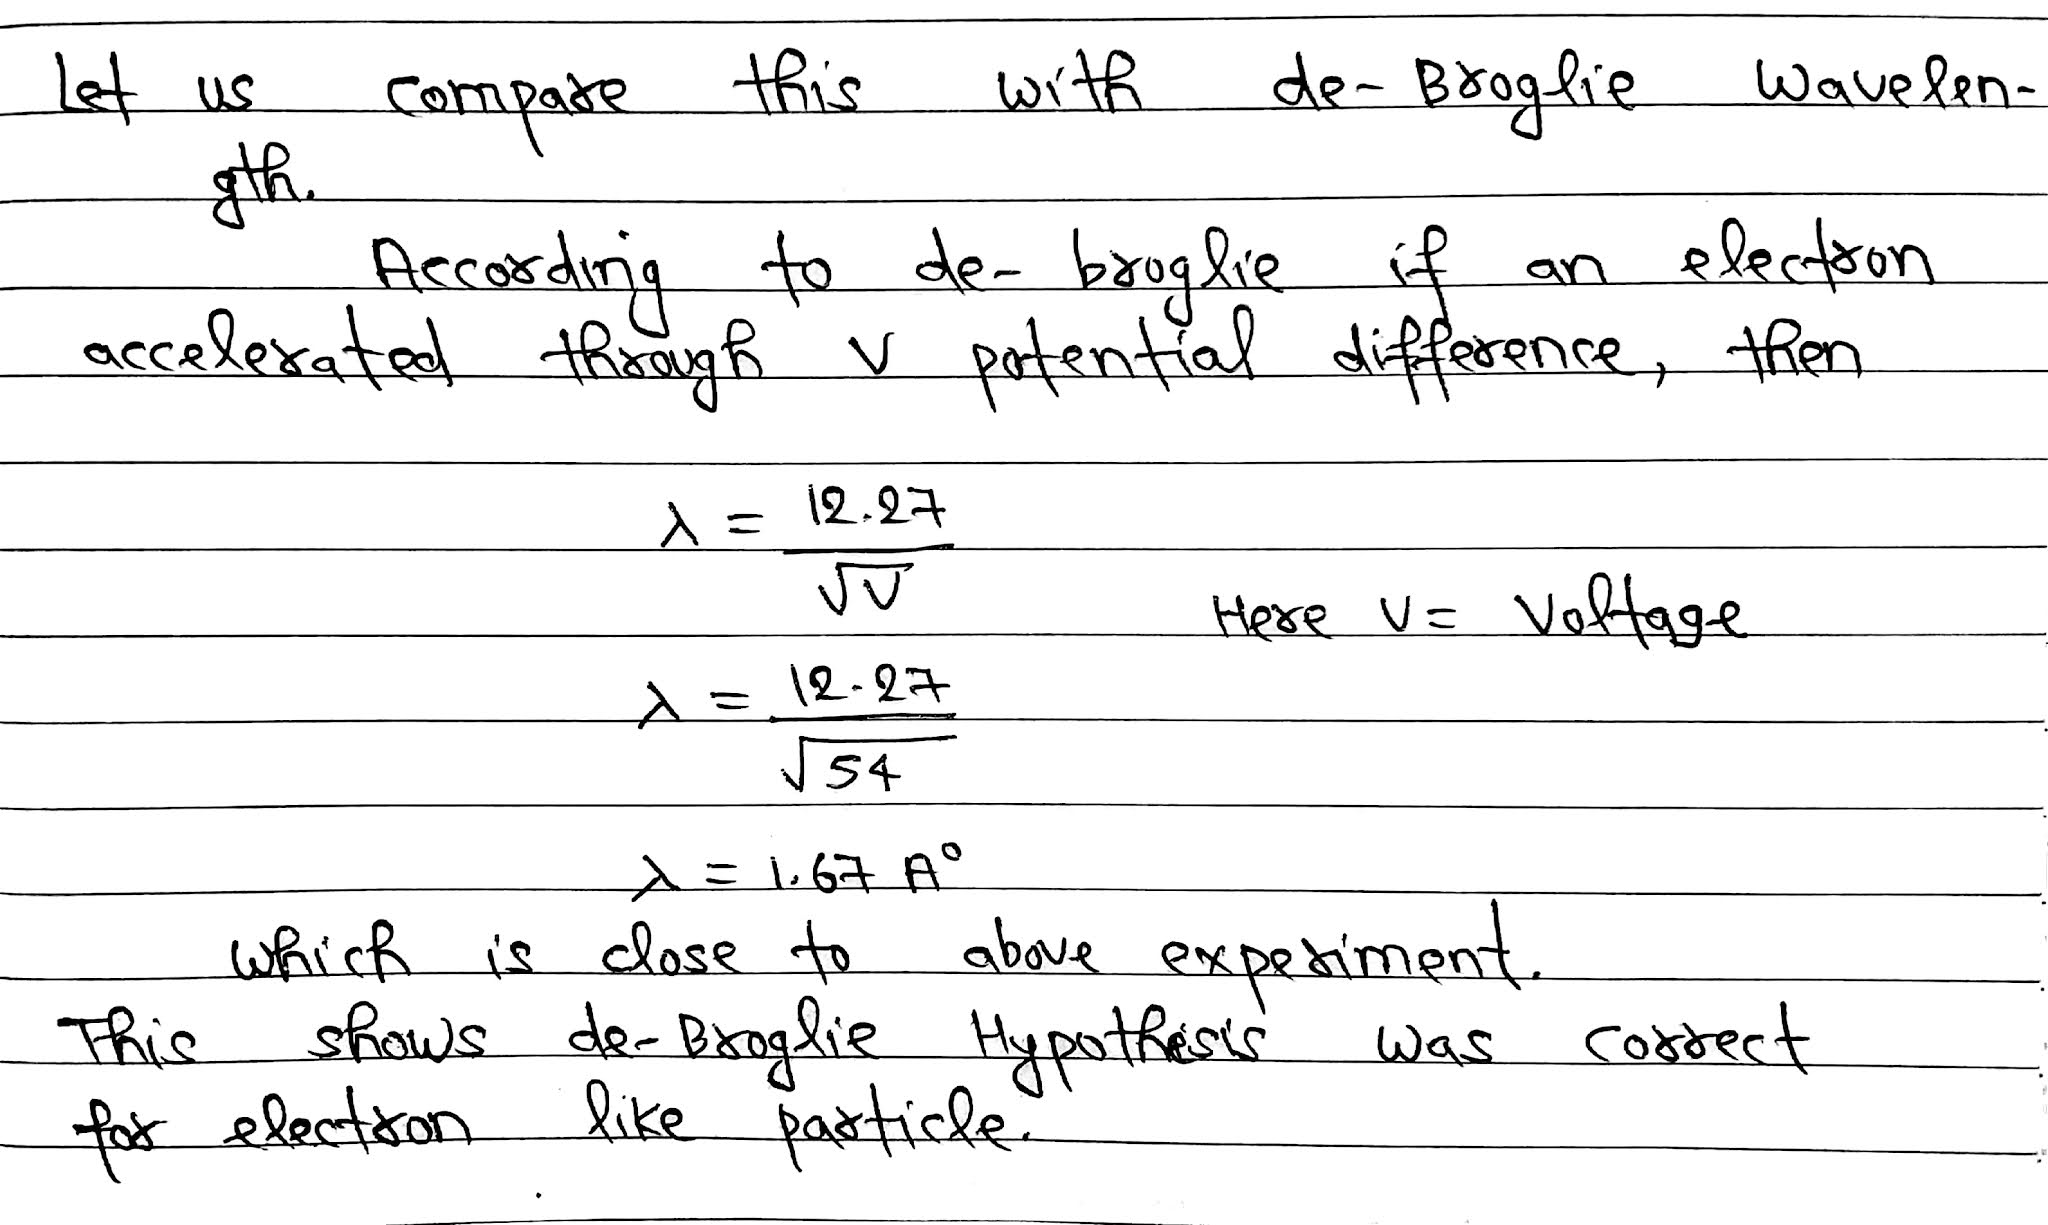 Let us compare this with de-Broglie Wavelen-
gth.
According to de-broglie if an electron
accelerated through V potential difference, then
λ = 12.27
√V
Here V = Voltage
λ = 12.27
√54
λ = 1.67 A°
Which is close to above experiment.
This shows de-Broglie Hypothesis was correct
for electron like particle.